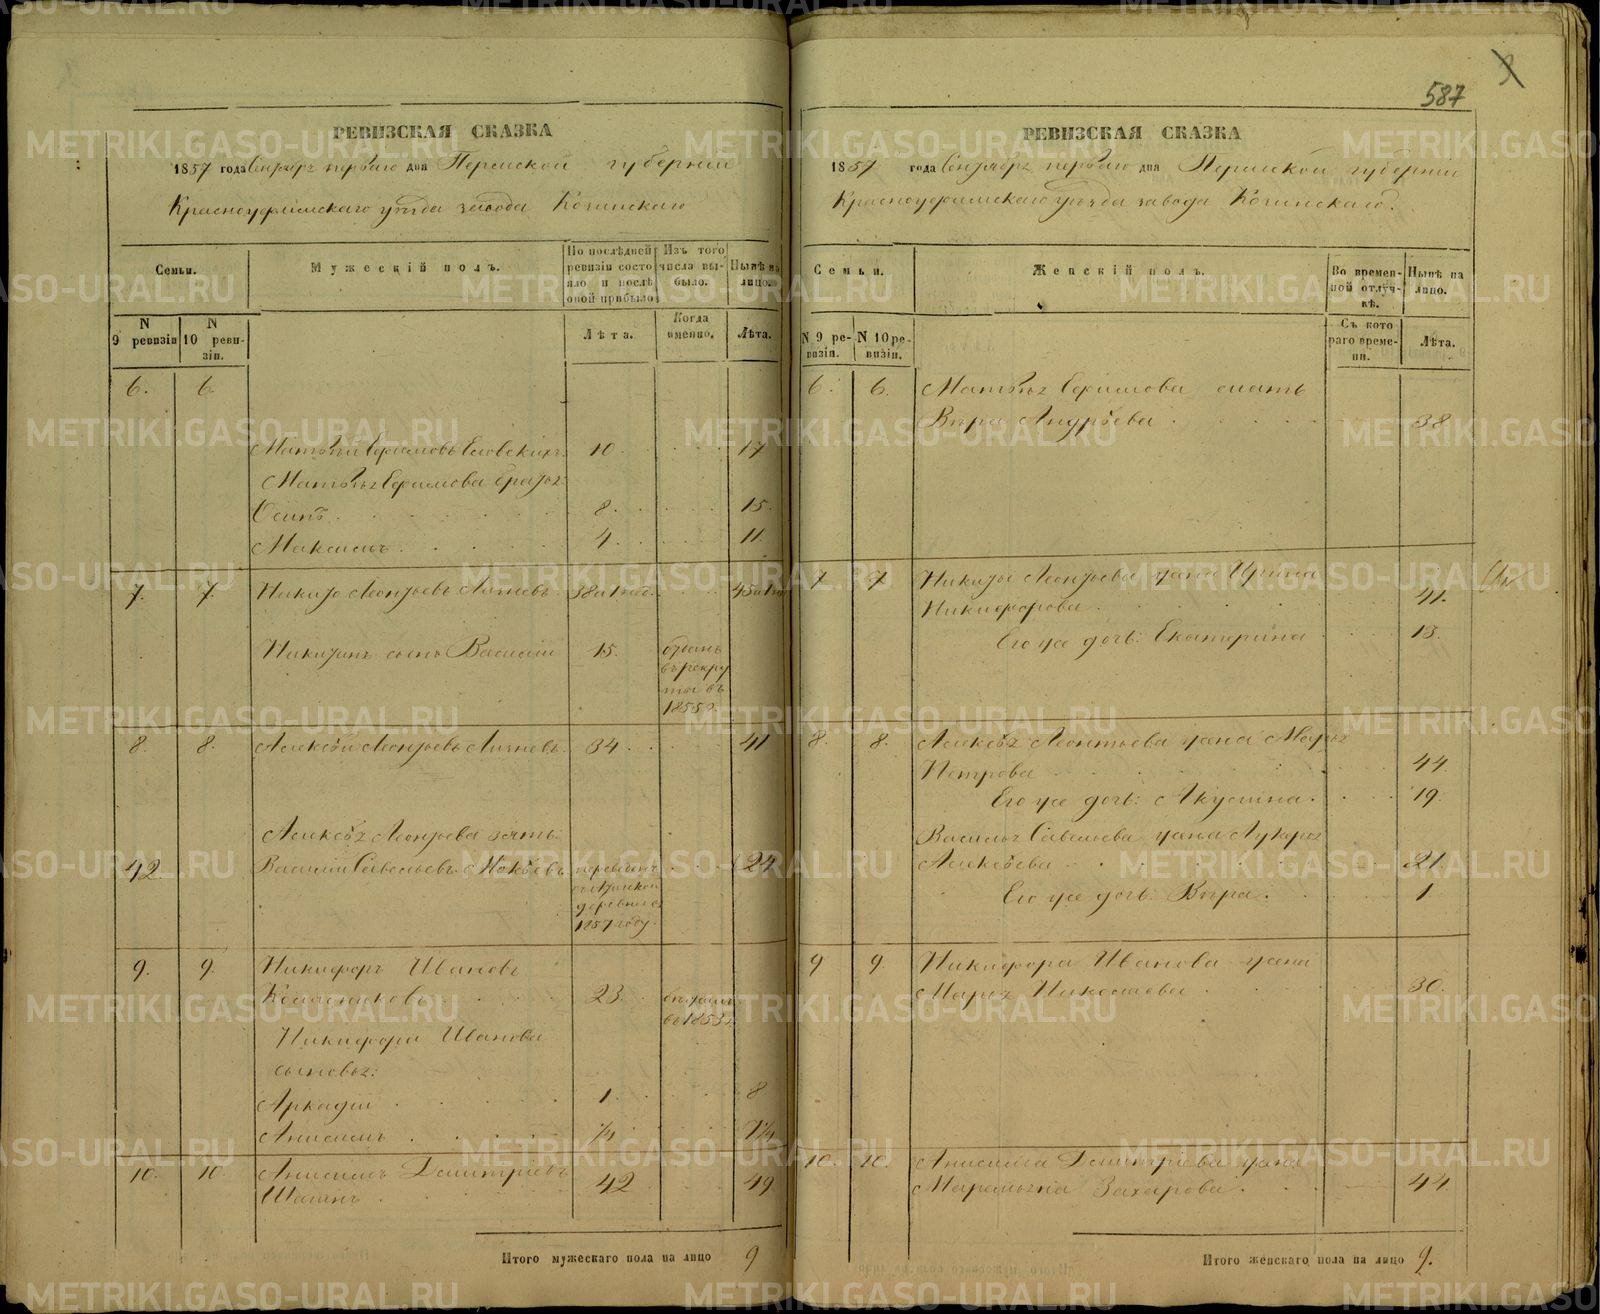 587
РЕВИЗСКАЯ СКАЗКА
1857 года Сентября первого дня Пермской губерніи
Красноуфимскаго уѣзда завода
Семьи.
Мужескій полъ.
По послѣдней ревизіи состояло и послѣ оной прибыло
Изъ того числа выбыло.
Нынѣ на лицо.
N 9 ревизіи
N 10 ревизіи.
Лѣта.
Когда именно.
Лѣта.
6. 6.
Матвѣй Ефимовъ 10 17
Матвѣя Ефимова братья:
Осипъ 8 15
Максимъ 4 11
7. 7. Никита Леонтьевъ 38 45
Никитинъ сынъ Василій 15 отданъ
въ рекру
ты въ
1855 г.
8. 8. Алексѣй Леонтьевъ 34 41
Алексѣя Леонтьева зять
42 Василій Савельевъ 24
деревни въ
1857 году
9. 9. Никифоръ Ивановъ
23
1853
Никифора Иванова
сыновья:
Аркадій 1 8
Анисимъ
10. 10. Анисимъ Дмитріевъ
42 49
Итого мужескаго пола на лицо 9
РЕВИЗСКАЯ СКАЗКА
1857 года Сентября первого дня Пермской губерніи
Красноуфимскаго уѣзда завода
Семьи.
Женскій полъ.
Во временной отлучкѣ.
Нынѣ на лицо.
N 9 ревизіи.
N 10 ревизіи.
Съ котораго времени.
Лѣта.
6. 6. Матвѣя Ефимова мать
Вѣра Андрѣева 38
7 7 Никиты Леонтьева жена Ирина
Никифорова 41.
Его же дочь: Екатерина 13.
8. 8. Алексѣя Леонтьева жена Марья
Петрова 44
Его же дочь: Акулина 19
Василья Савельева жена Лукерья
Алексѣева 21
Его же дочь: Вѣра 1
9 9. Никифора Иванова жена
Марья 30.
10. 10. Анисима Дмитріева жена
Захарова 44
Итого женскаго пола на лицо 9.
METRIKI.GASO-URAL.RU